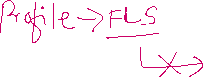 Profile → FLS